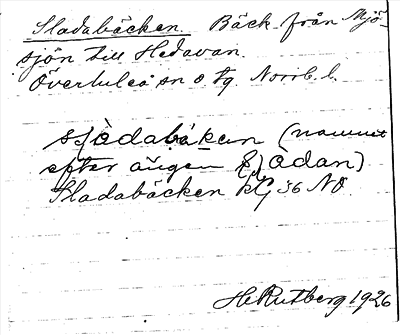 Sladabäcken. Bäck från Mjö-
sjön till Hedavan.
Överluleå sn o tg. Norrb. l.
sjòdabä̀kən (namnet
efter ängen Sjòdan)
Sladabäcken kG 36 NO
H. Rutberg 1926